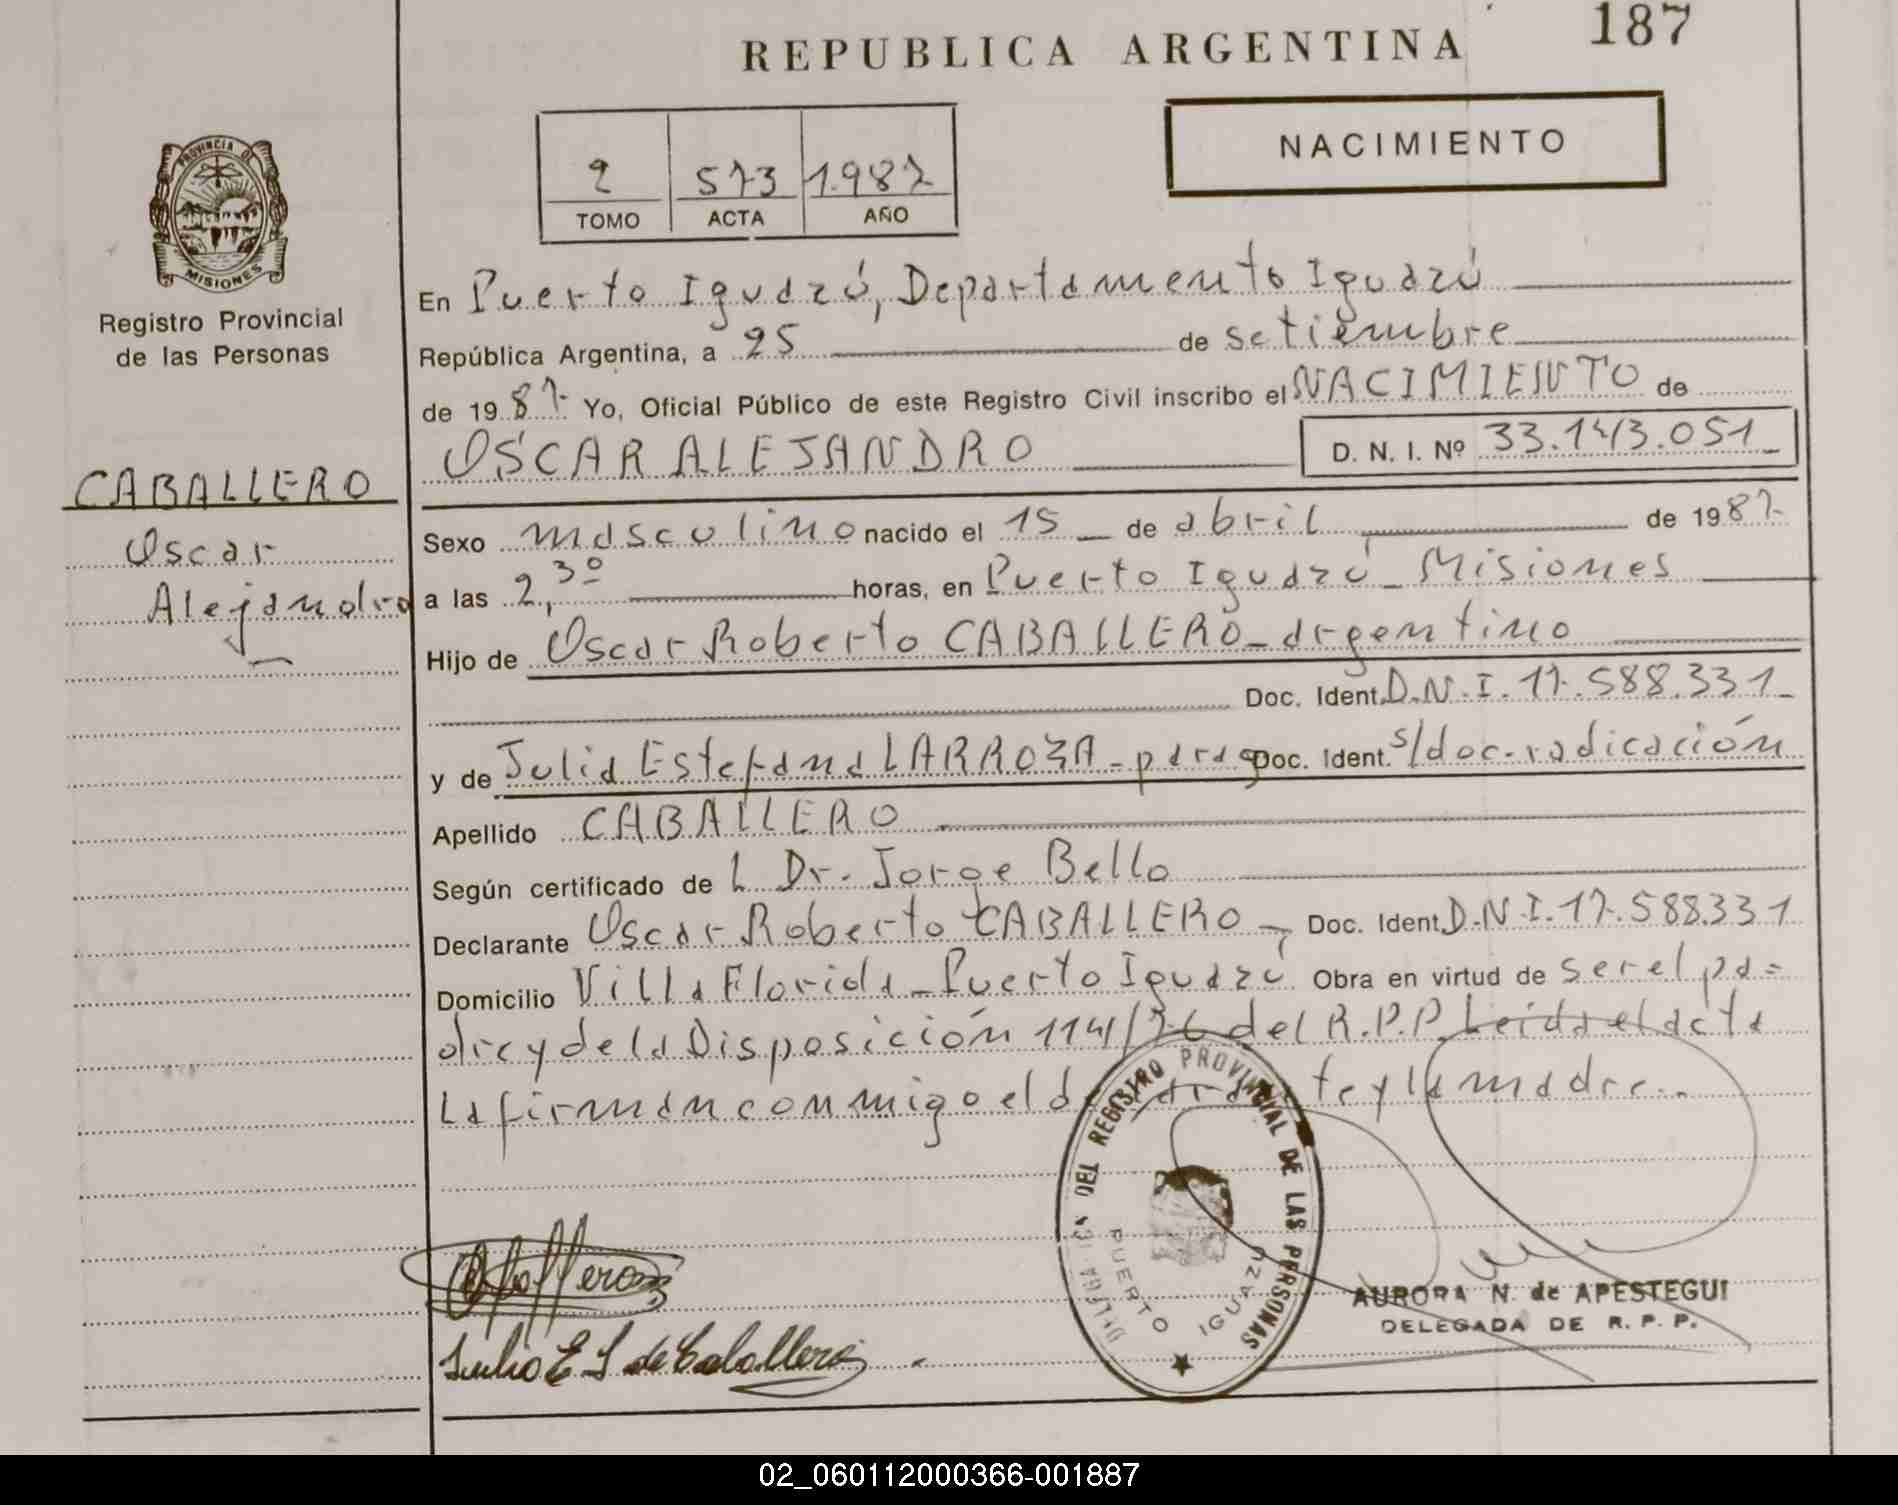 REPUBLICA ARGENTINA
187
NACIMIENTO
2 573 1.987
TOMO ACTA AÑO
PROVINCIA DE
MISIONES
Registro Provincial
de las Personas
CABALLERO
Oscar
Alejandro
En Puerto Iguazú, Departamento Iguazú
República Argentina, a 25 de setiembre
de 1987 Yo, Oficial Público de este Registro Civil inscribo el NACIMIENTO de
OSCAR ALEJANDRO D. N. I. Nº 33.143.051
Sexo masculino nacido el 15 de abril de 1987
a las 2,30 horas, en Puerto Iguazú - Misiones
Hijo de Oscar Roberto CABALLERO - argentino
Doc. Ident. D.N.I. 17.588.331
y de Julia Estefana LARROZA - parag Doc. Ident. s/doc. radicación
Apellido CABALLERO
Según certificado de L Dr. Jorge Bello
Declarante Oscar Roberto CABALLERO - Doc. Ident. D.N.I. 17.588.331
Domicilio Villa Florida - Puerto Iguazú Obra en virtud de ser el pa=
dre y de la Disposición 114/76 del R.P.P. Leída el acta
La firman conmigo el declarante y la madre.-
DELEGACION DEL REGISTRO PROVINCIAL DE LAS PERSONAS
PUERTO IGUAZU
Julia E L de Caballero
AURORA N. de APESTEGUI
DELEGADA DE R. P. P.
02_060112000366-001887